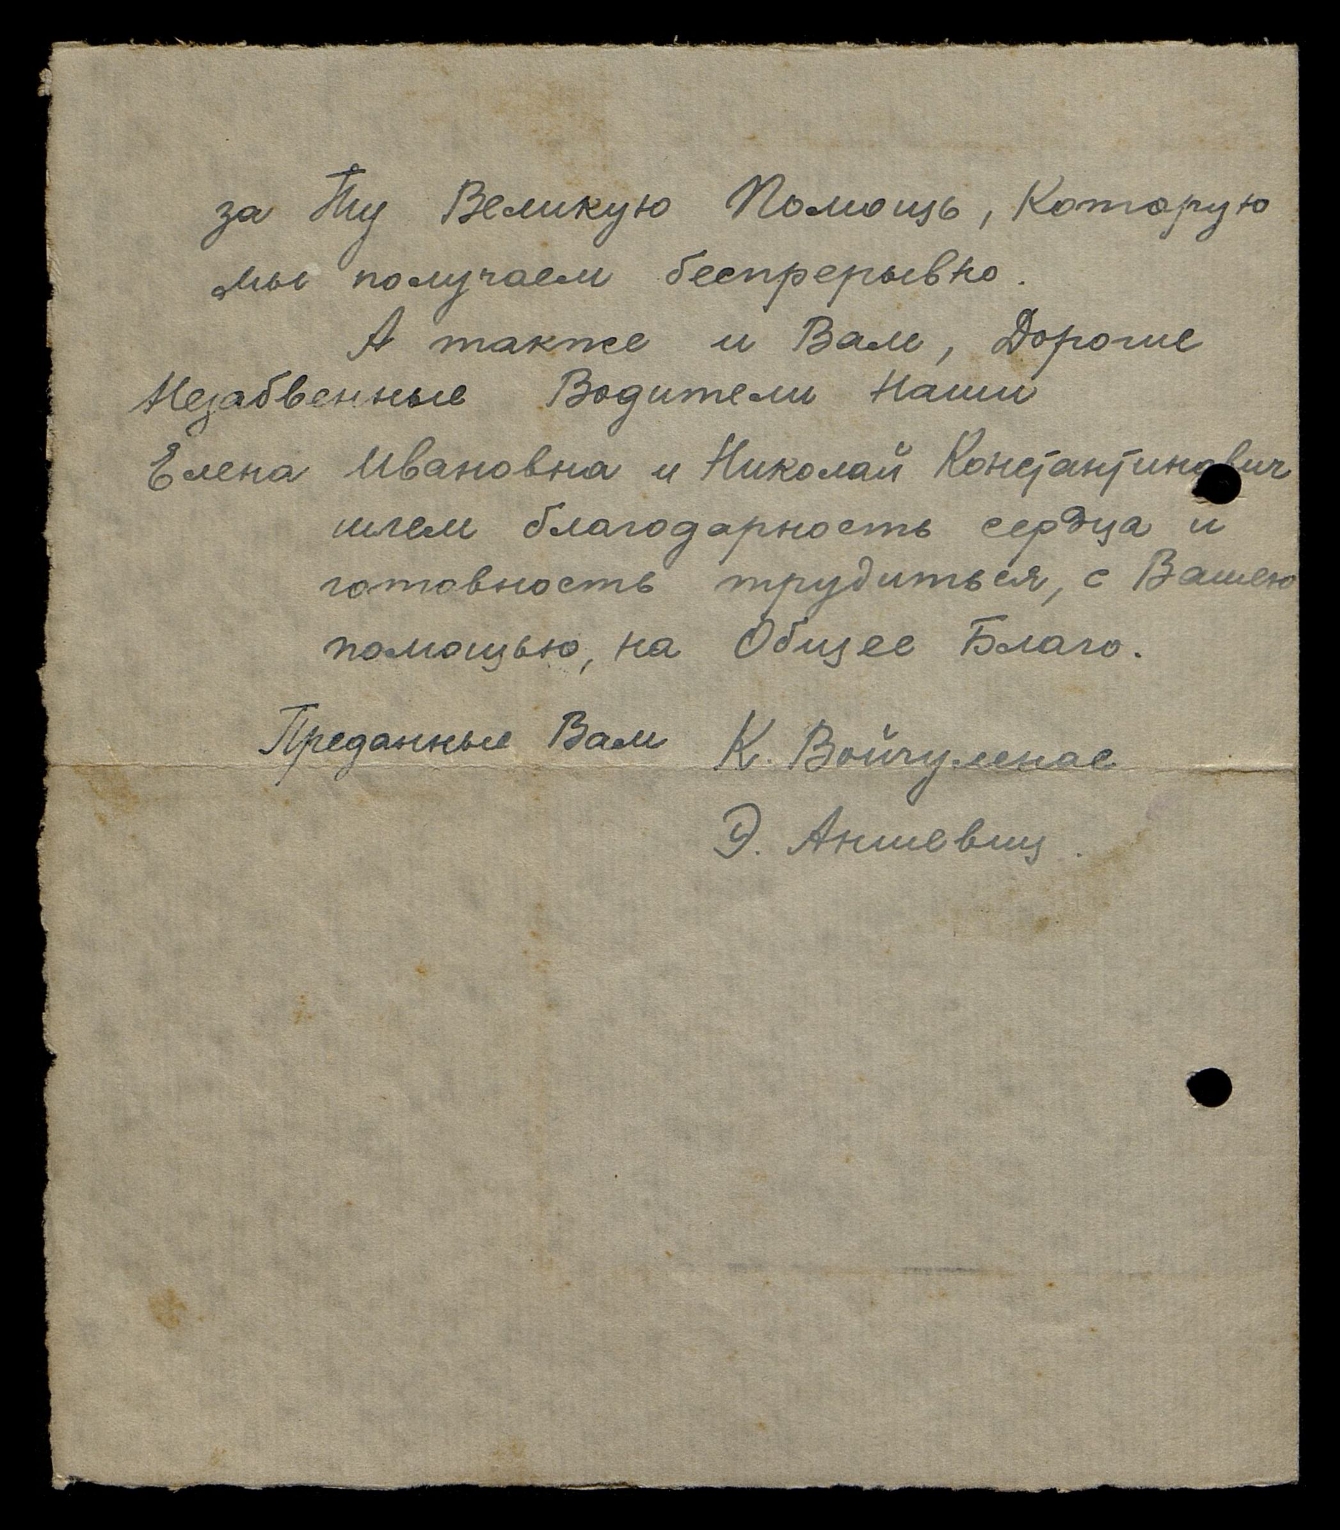 за Ту Великую Помощь, Которую
мы получаем беспрерывно.
А также и Вам, Дорогие
Незабвенные Водители Наши
Елена Ивановна и Николай Константинович
шлем благодарность сердца и
готовность трудиться, с Вашею
помощью, на Общее Благо.
Преданные Вам К. Войчуленас
Э. Аншевиц.